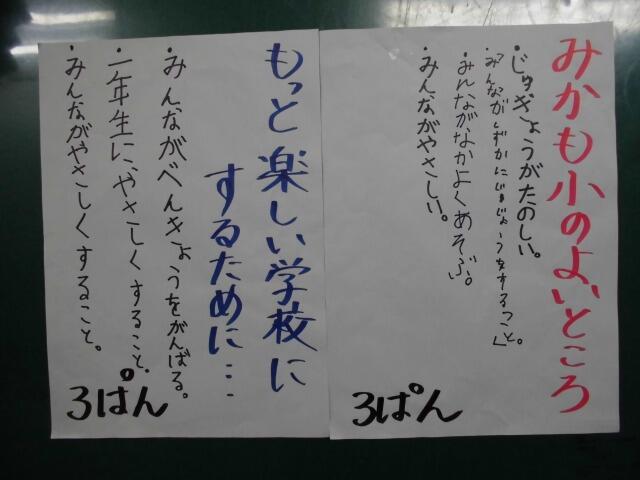 みかも小のよいところ
・じゅぎょうがたのしい。
・みんながなかよくあそぶ。
・みんながやさしい。
3ぱん
もっと楽しい学校に
するために…
・みんながべんきょうをがんばる。
・一年生にやさしくすること。
・みんながやさしくすること。
3ぱん